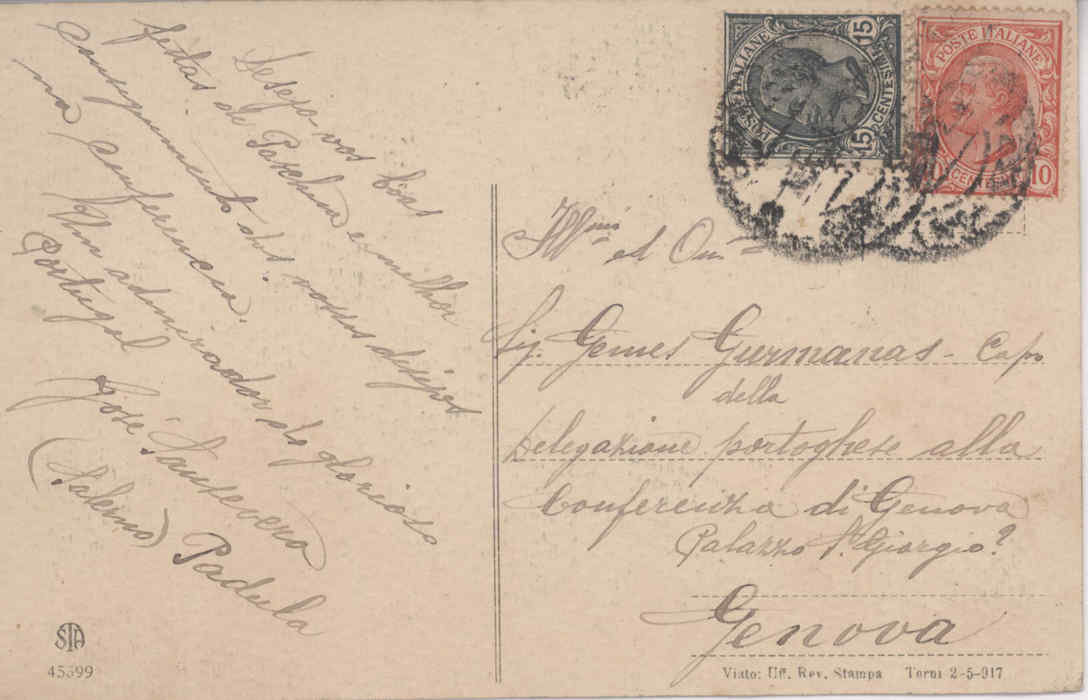 Desejo-vos bôas
festas de Paschoa e melhor
conseguimento dos vossos desejos
na conferencia.
Um admirador do glorioso
Portugal
José Sanseverino
(Salerno) Padula
POSTE ITALIANE
15 CENTESIMI 15
POSTE ITALIANE
10 CENTESIMI 10
Ill.mo ed On.
Sig. Gomes Gurmanas - Capo
della
Delegazione portoghese alla
Conferenza di Genova
Palazzo S. Giorgio?
Genova
STA
45399
Visto: Uff. Rev. Stampa Terni 2-5-917